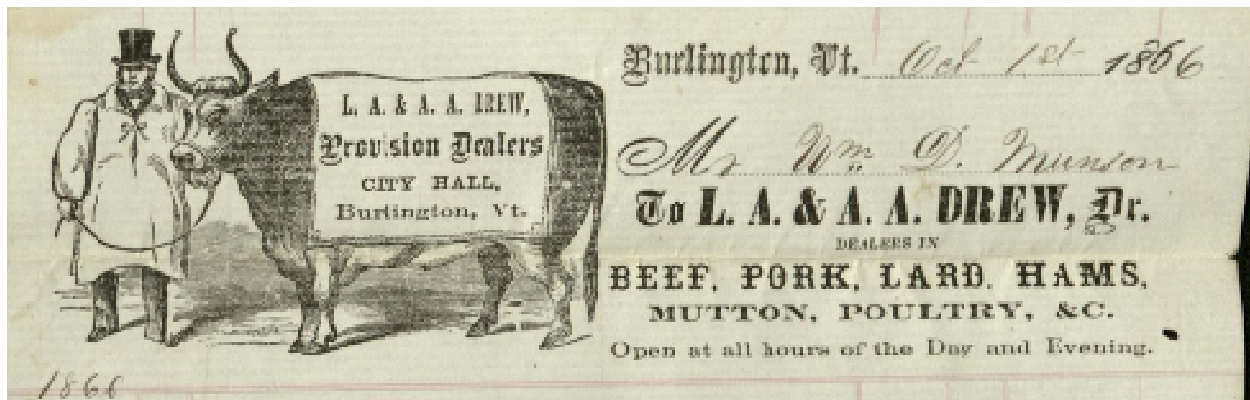 L. A. & A. A. DREW,
Provision Dealers
CITY HALL,
Burlington, Vt.
Burlington, Vt. Oct 1st 1866
Mr Wm D. Munson
To L. A. & A. A. DREW, Dr.
DEALERS IN
BEEF, PORK, LARD, HAMS,
MUTTON, POULTRY, &C.
Open at all hours of the Day and Evening.
1866